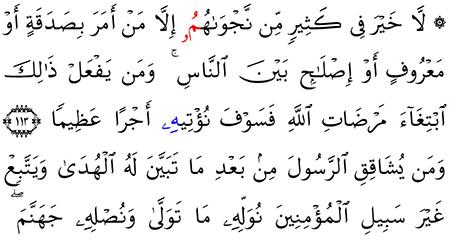 ۞ لَّا خَيْرَ فِى كَثِيرٍ مِّن نَّجْوَىٰهُمُۥ إِلَّا مَنْ أَمَرَ بِصَدَقَةٍ أَوْ
مَعْرُوفٍ أَوْ إِصْلَٰحٍۭ بَيْنَ ٱلنَّاسِ ۚ وَمَن يَفْعَلْ ذَٰلِكَ
ٱبْتِغَآءَ مَرْضَاتِ ٱللَّهِ فَسَوْفَ نُؤْتِيهِۦ أَجْرًا عَظِيمًا ١١٣
وَمَن يُشَاقِقِ ٱلرَّسُولَ مِنۢ بَعْدِ مَا تَبَيَّنَ لَهُ ٱلْهُدَىٰ وَيَتَّبِعْ
غَيْرَ سَبِيلِ ٱلْمُؤْمِنِينَ نُوَلِّهِۦ مَا تَوَلَّىٰ وَنُصْلِهِۦ جَهَنَّمَ ۖ